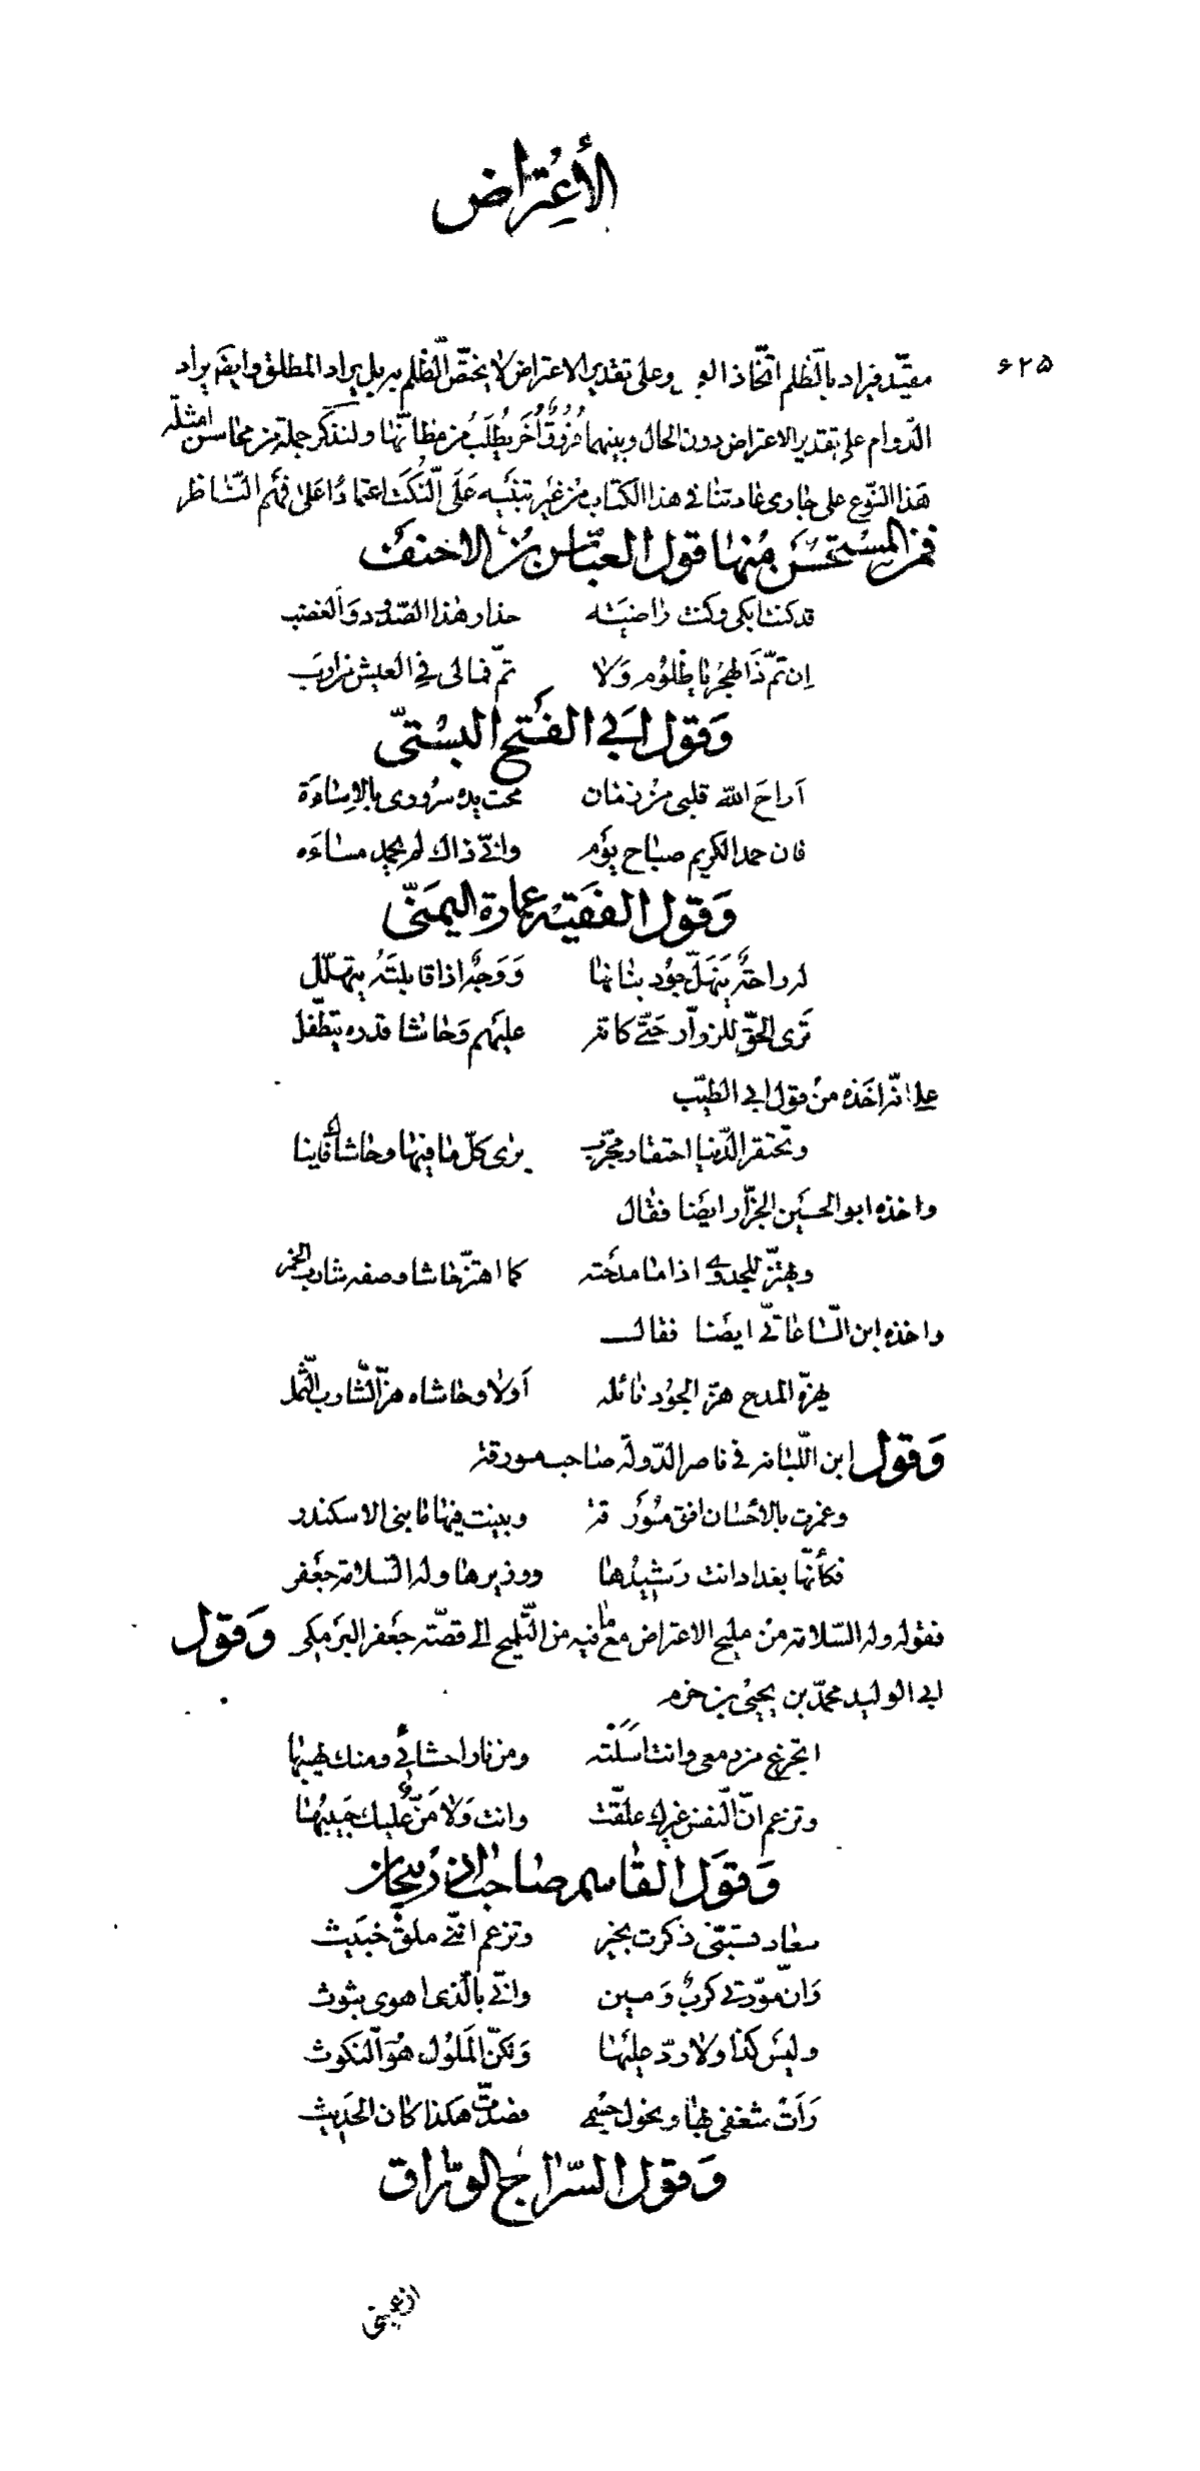 الأعتراض
۶۲۵
مقيّد فيراد بالّظلم اتّخاذ العجل وعلى تقدير الاعتراض لا يختصّ الّظلم به بل يراد المطلق وايضَه يراد
الدّوام على تقدير الاعتراض دون الحال وبينهما فُروقٌ أُخَر يُطلَبُ من مظانّها ولنذكر جملة من محاسن امثلة
هذا النّوع على جارى عادتنا فى هذا الكتاب من غير تنبيه عَلَى الّنكَت اعتمادًا عَلىٰ فَهْم النّاظر
فمن المسْتحسَن منها قول العبّاس بنُ الاحنف
قد كنت ابكى وكنت راضيَته    حذار هٰذا الصّدود وَالغضب
اِن تمّ ذَا الهجر يا ظلُوم وَلا    تمّ فمالى فى العيش من اَرب
وَقول ابَى الفَتح البسْتىّ
اَراحَ اللّه قلبى منْ زمٰان    محت يده سرُورى بالاِسٰاءَة
فان حمد الكريم صبٰاح يوَم    وانّى ذاك لم يحمد مسٰاءَه
وَقول الفقيْه عمارة اليمَنىّ
له راحةٌ يَنهَلّ جُود بنٰانهٰا    وَوَجهٌ اذا قابلتَهُ يتهلّل
تَرى الحَقّ للزوّار حَتّى كانّه    عليهم وَحٰاشٰا قدره يتطفّل
على انّه اخَذه منْ قول ابى الطيّب
وتحتقر الدّنيا احتقار مجرّب    يرٰى كلّ مٰا فيهٰا وحٰاشاكَ فٰانيا
واخذه ابو الحسَين الجزّار ايضَا فقٰال
ويهتزّ للجدوٰى اذا مٰا مدَحته    كما اهتزّ حٰاشا وصفه شارب الخمر
واخذه ابن السّٰاعٰاتىّ ايضَا فقال
يهزّه المدح هزّ الجوُد نٰائله    اَولا وحٰاشاه هزّ الشّارب الثّمل
وَقول ابن اللّبّانه فى ناصر الدّولة صٰاحب ميورقة
وغمرت بالأحسٰان افق مُيوَرقة    وبنيت فيهٰا مٰا بنى الاسكندر
فكأنّها بغداد انت رَشيدُهٰا    ووزيرهٰا وله السّلامة جعَفر
فقوله وله السّلامة منْ مليح الاعتراض معَ مٰا فيه من التّلميح الى قصّة جعَفر البَرمكى وَقول
ابى الوليد محمّد بن يحيىٰ بن حزم
اتجزع من دمعى وانت اَسَلْته    ومن نار احشائى ومنك لهيبهٰا
وتزعم انّ النّفس غيرك علّقت    وانت وَلا مَنّ عليك حَبيبُهٰا
وَقوَل القٰاسم صٰاحب
سعٰاد تسبّنى ذكرت بخير    وتزعم انّنى ملقٌ خبيَث
وَانّ مودّتى كربٌ وَمين    وانّى بالّذى اهوى بثوث
وليسَ كذٰا ولا ردّ عليهَٰا    وَلكنّ المَلوُل هُوَ النّكوث
رَاَتْ شغفى بهٰا ونحول جسْمى    فصدّت هٰكذا كٰان الحَديث
وَقول السّرٰاج الورّاق